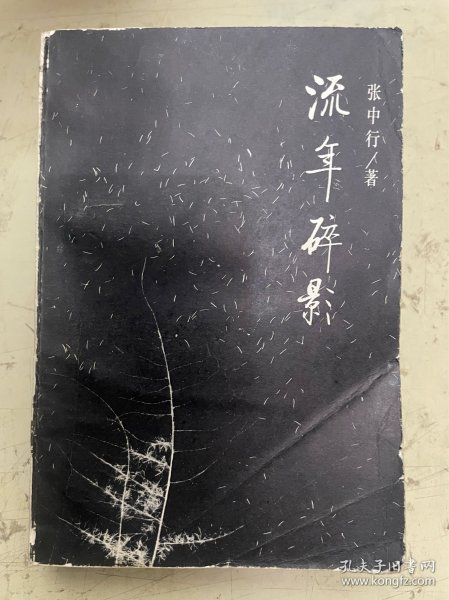 流年碎影
张中行/著
孔夫子旧书网
www.kongfz.com